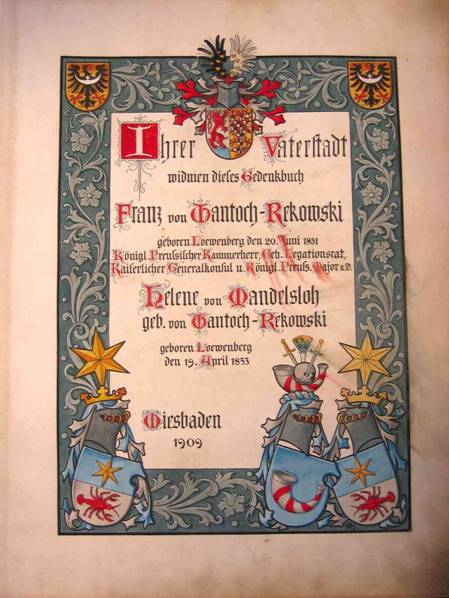 Ihrer Vaterstadt
widmen dieses Gedenkbuch
Franz von Mantoch-Rekowski
geboren Loewenberg den 20. Juni 1851
Königl. Preußischer Kammerherr, Geh. Legationsrat,
Kaiserlicher Generalkonsul u. Königl. Preuß. Major a.D.
Helene von Mandelsloh
geb. von Mantoch-Rekowski
geboren Loewenberg
den 19. April 1853
Wiesbaden
1909